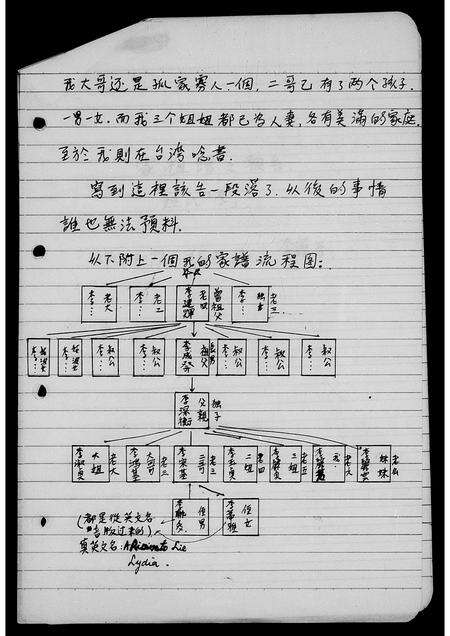 我大哥还是孤家寡人一個，二哥已有了两个孩子.
一男一女.而我三个姐姐都已为人妻,各有美滿的家庭.
至於我則在台湾唸書.
寫到這裡該告一段落了.以後的事情
誰也無法預料.
以下附上一個我的家譜流程图:
李… 老大
李… 老二
李 老 曾祖父
李…
李… 叔公
李… 叔公
李 祖父
李… 叔公
李… 叔公
李… 叔公
李深衡 父親 独子
大姐 老大
李鴻基 大哥 老二
李宗基 二哥 老三
二姐 老四
三姐 老五
妹妹
侄男
侄女
(都是從英文名
音版过来的)
真英文名:
Lie
Lydia.